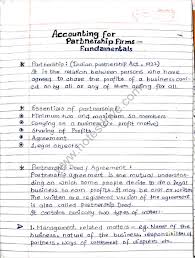 Accounting for
Partnership Firms –
Fundamentals
* Partnership : (Indian partnership Act, 1932)
It is the relation between persons who have
agreed to share the profits of a business carri
ed by all or any of them acting for all.
* Essentials of partnership
- Minimum two and maximum 50 members
- Carrying on a business (profit motive)
- Sharing of Profits
- Agreement
- Legal objects
* Partnership Deed / Agreement :
Partnership agreement is the mutual understand
ing on which some people decide to do a legal
business to earn profit. It may be oral or written
The written are registered version of the agreement
is also called Partnership Deed.
It contains basically two types of matter:
1. Management related matters - Eg. name of the
business, nature of the business, responsibilities
partners, ways of settlement of disputes etc.